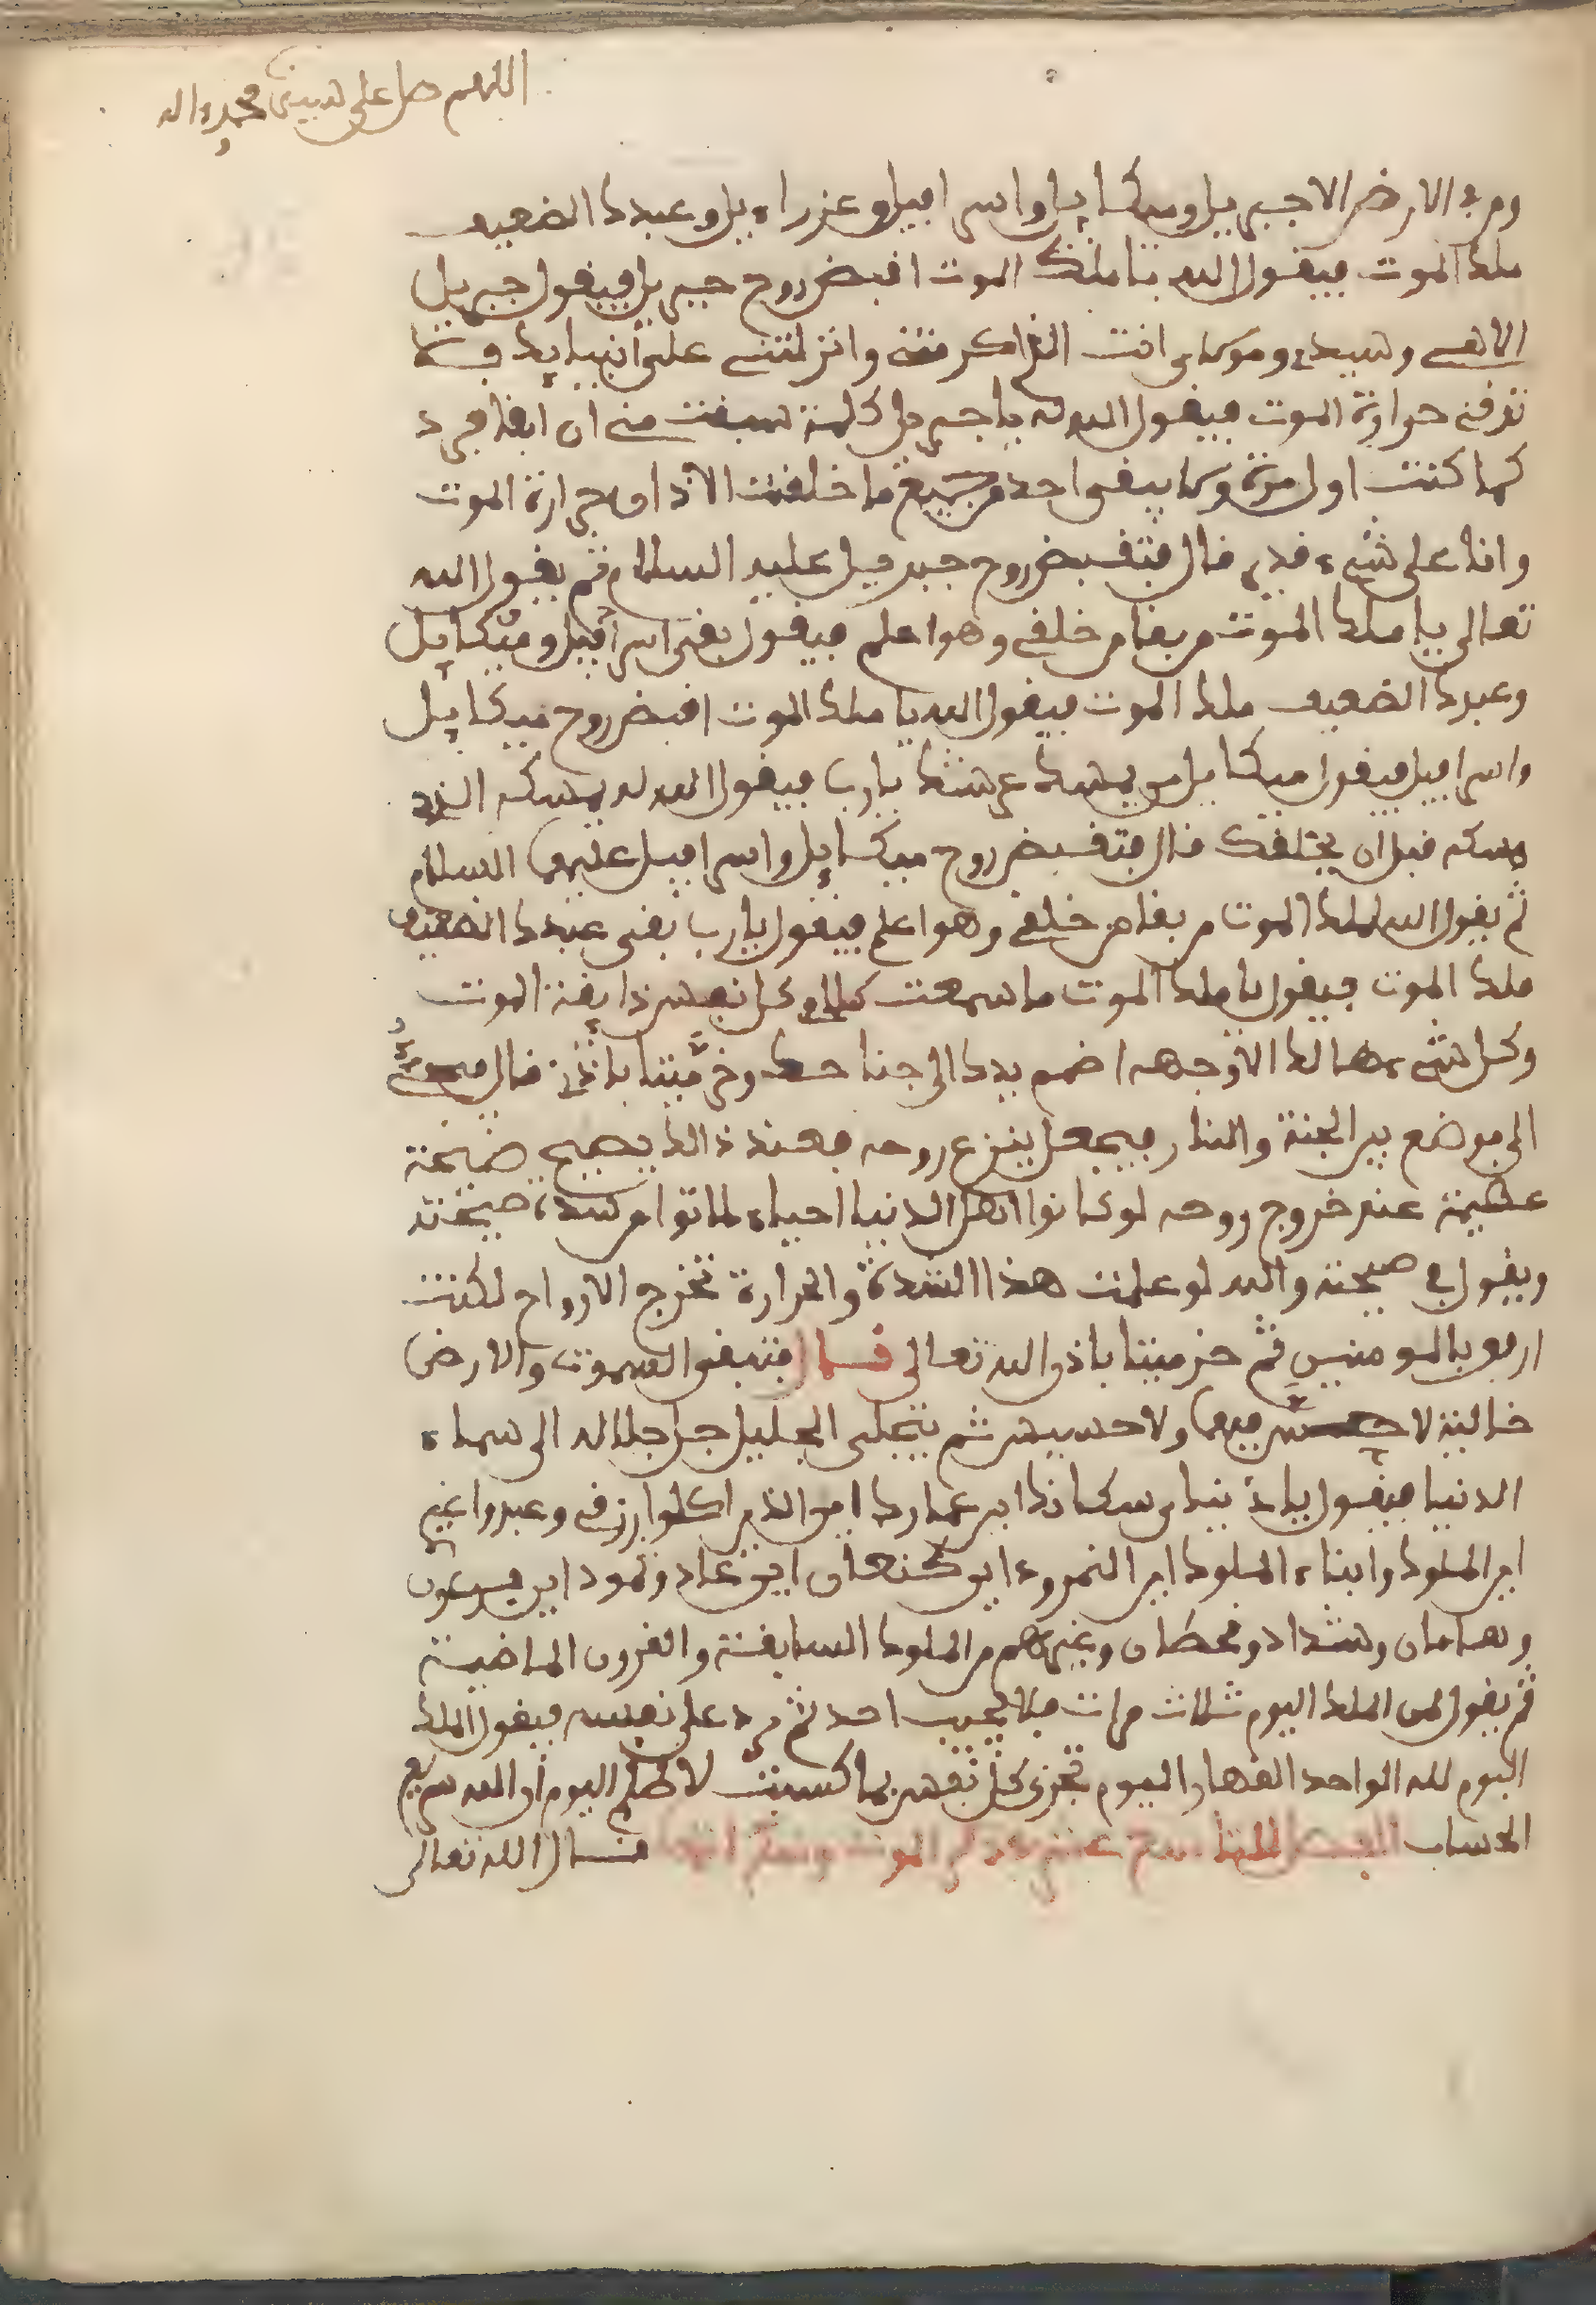 اللهم صل على نبينا محمد واله
ومن في الارض الا جبريل وميكاييل واسرافيل وعزراءيل وعبدك الضعيف
ملك الموت فيقول الله يا ملك الموت اقبض روح جبريل فيقول جبريل
الاهي وسيدي ومولاي انت الذي اكرمتني وانزلتني على انبيايك فلا
تذقني حرارة الموت فيقول الله له يا جبريل كلمة سبقت مني ان ابقا فريد
كما كنت اول مرة ولا يبقى احد من جميع ما خلقت الا ذاق حرارة الموت
وانا على شيء قدير قال فتقبض روح جبريل عليه السلام ثم يقول الله
تعالى يا ملك الموت من بقا من خلقي وهو اعلم فيقول بقى اسرافيل وميكاييل
وعبدك الضعيف ملك الموت فيقول الله يا ملك الموت اقبض روح ميكاييل
واسرافيل فيقول ميكاييل من يمسك عرشك يا رب فيقول الله له يمسكه الذي
مسكه قبل ان يخلقك قال فتقبض روح ميكاييل واسرافيل عليهما السلام
ثم يقول الله لملك الموت من بقا من خلقي وهو اعلم فيقول يا رب بقى عبدك الضعيف
ملك الموت فيقول يا ملك الموت ما سمعت كلامي كل نفس ذايقة الموت
وكل شيء هالك الا وجهه اضمم يدك الى جناحك وخر ميتا باذني قال
الى موضع بين الجنة والنار فيجعل ينزع روحه فعند ذالك يصيح صيحة
عظيمة عند خروج روحه لو كانوا اهل الدنيا احياء لماتوا من شدة صيحته
ويقول في صيحته والله لو علمت هذا الشدة والحرارة تخرج الارواح لكنت
ارفق بالمومنين ثم خر ميتا باذن الله تعالى قال فتبقى السموت والارض
خالية لا حس فيها ولا حسيس ثم يتجلى الجليل جل جلاله الى سماء
الدنيا فيقول يا دنياى سكانك اين عمارك اين الذين اكلوا رزقي وعبدوا غيري
اين الملوك وابناء الملوك اين النمرود اين كنعان اين عاد وثمود اين فرعون
وهامان وشداد وقحطان وغيرهم من الملوك السابقة والقرون الماضية
ثم يقول لمن الملك اليوم ثلاث مرات فلا يجيب احد ثم يرد على نفسه فيقول الملك
اليوم لله الواحد القهار اليوم تجزى كل نفس بما كسبت لا ظلم اليوم ان الله سريع
الحساب الفصل الموت قال الله تعالى